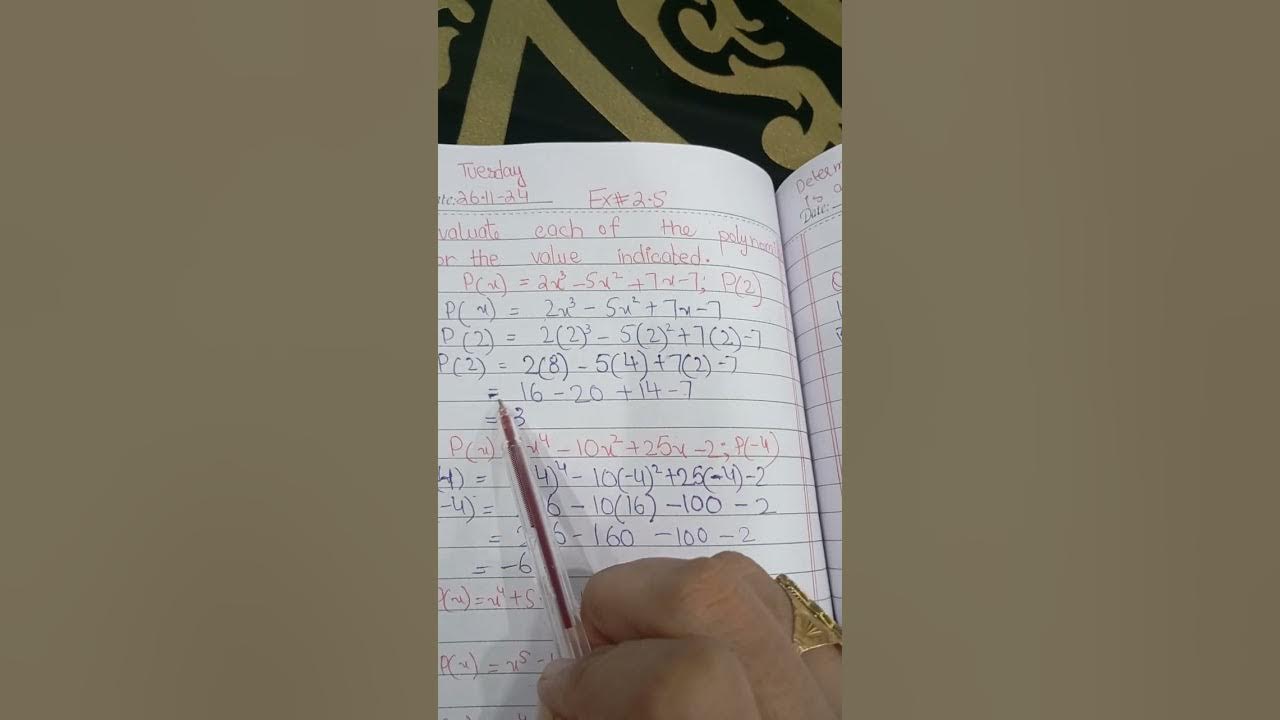 Tuesday
Date: 26-11-24 Ex# 2.5
valuate each of the polynomi
or the value indicated.
P(x) = 2x³ - 5x² + 7x - 7; P(2)
P(x) = 2x³ - 5x² + 7x - 7
P(2) = 2(2)³ - 5(2)² + 7(2) - 7
P(2) = 2(8) - 5(4) + 7(2) - 7
= 16 - 20 + 14 - 7
= 3
P(x) x⁴ - 10x² + 25x - 2; P(-4)
4) = 4)⁴ - 10(-4)² + 25(-4) - 2
-4) = 6 - 10(16) - 100 - 2
= 2 6 - 160 - 100 - 2
= -6
P(x) = x⁴ + 5
P(x) = x⁵ -
Determ
is a
Date: